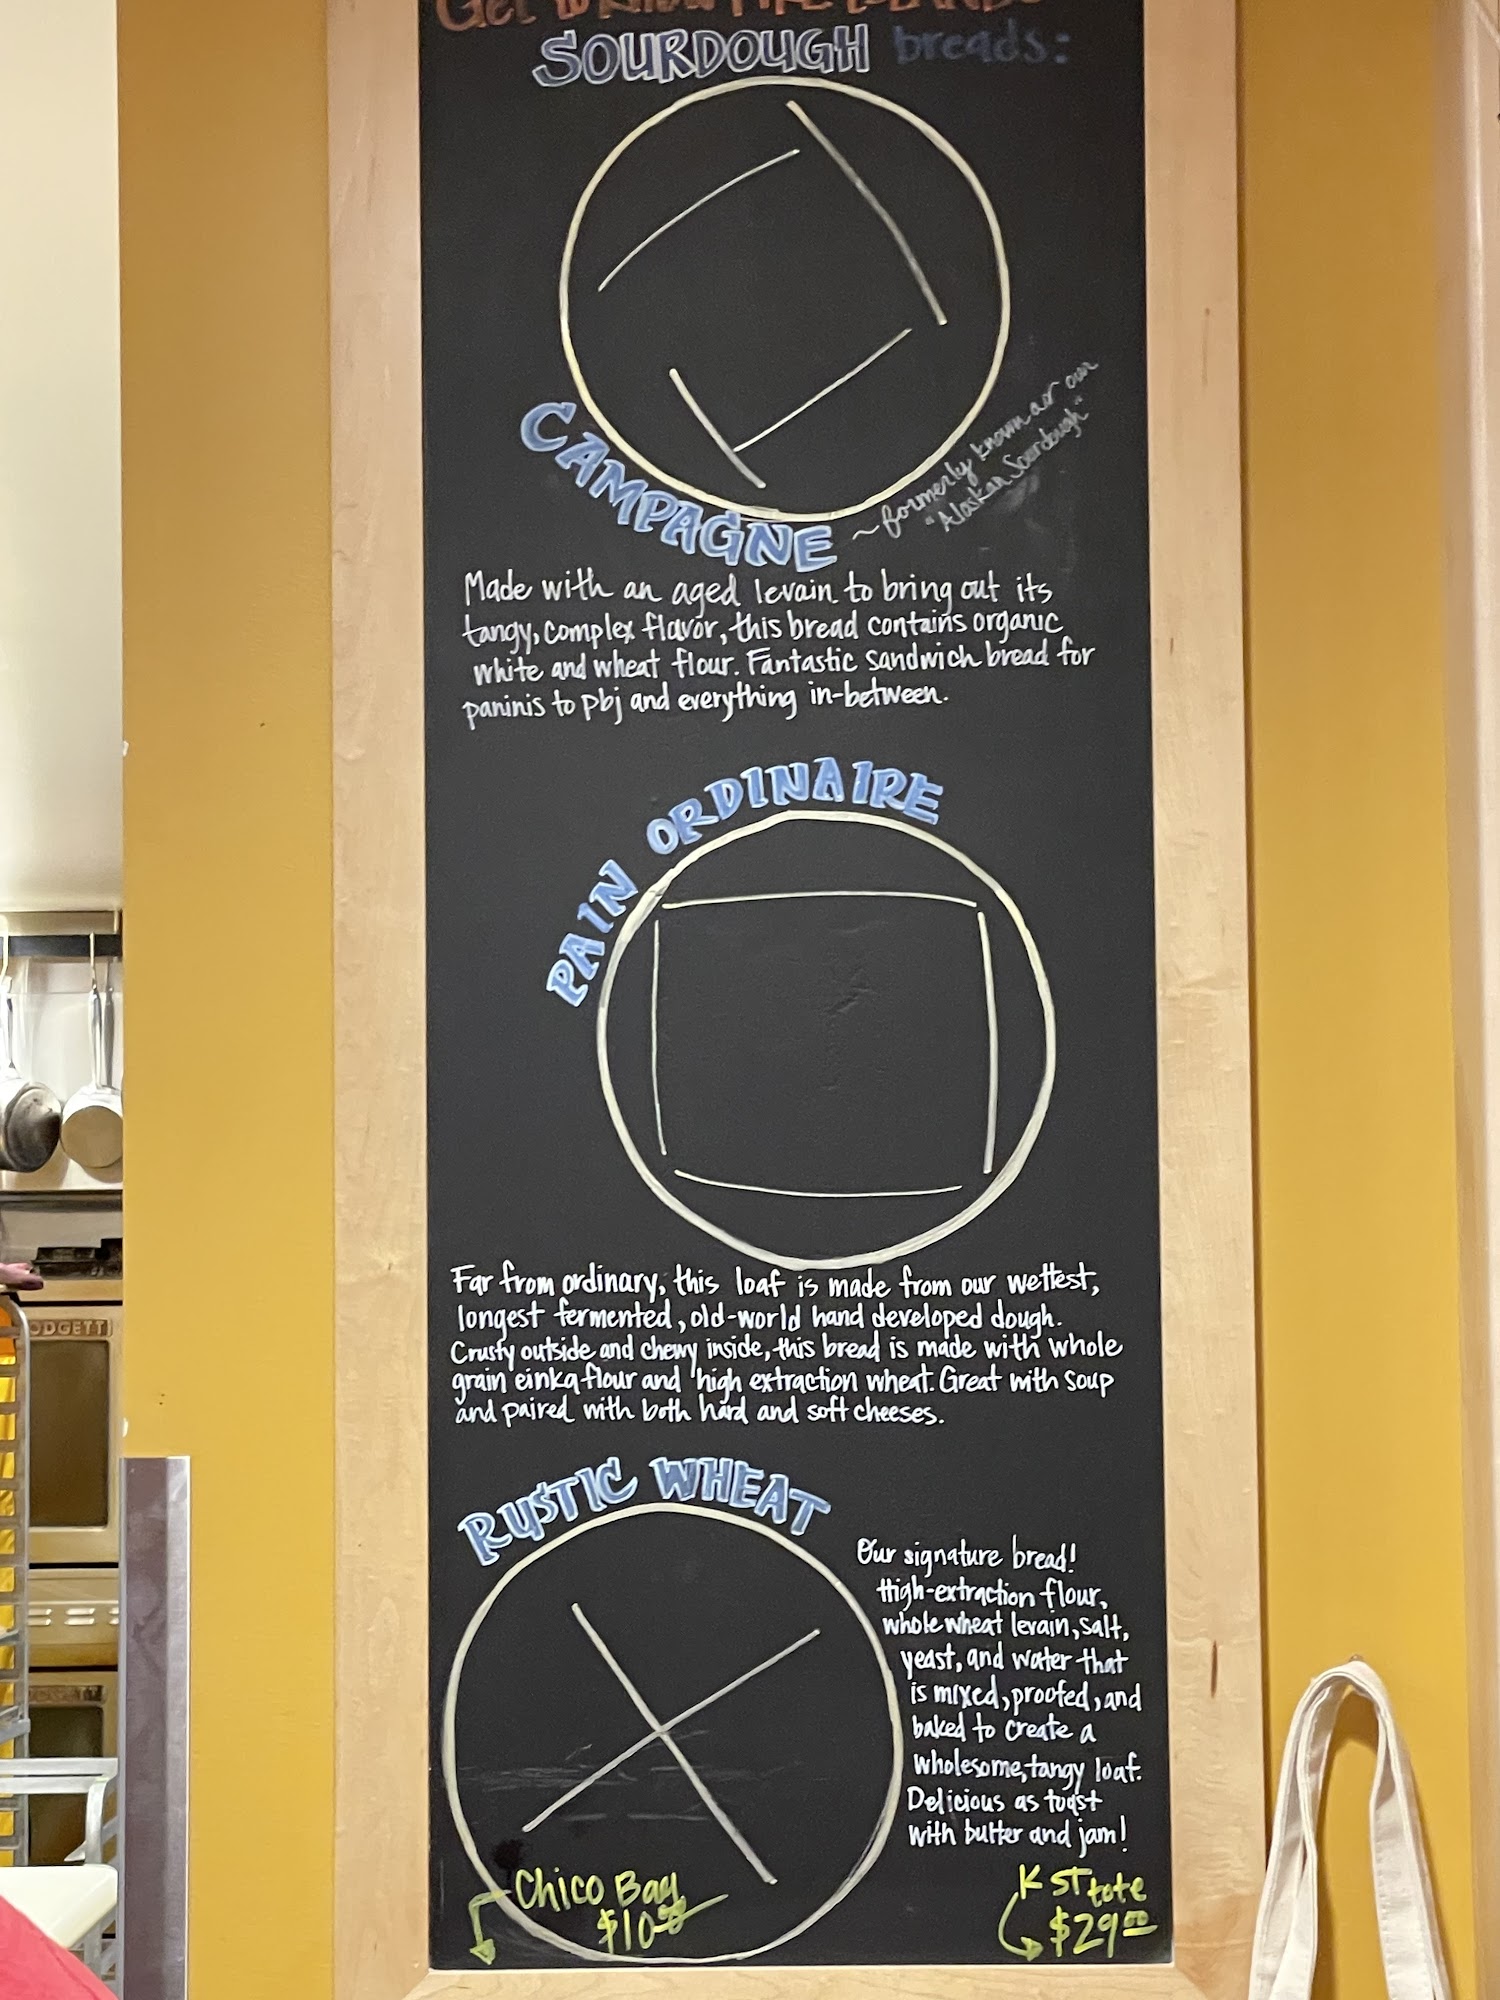 Get to know FIRE ISLAND'S
SOURDOUGH breads:
CAMPAGNE
~ formerly known as our
"Alaskan Sourdough"
Made with an aged levain to bring out its
tangy, complex flavor, this bread contains organic
white and wheat flour. Fantastic sandwich bread for
paninis to pbj and everything in-between.
PAIN ORDINAIRE
Far from ordinary, this loaf is made from our wettest,
longest fermented, old-world hand developed dough.
Crusty outside and chewy inside, this bread is made with whole
grain einka flour and high extraction wheat. Great with soup
and paired with both hard and soft cheeses.
RUSTIC WHEAT
Our signature bread!
High-extraction flour,
whole wheat levain, salt,
yeast, and water that
is mixed, proofed, and
baked to create a
wholesome, tangy loaf.
Delicious as toast
with butter and jam!
Chico Bag
$10.00
K ST tote
$29.00
ODGETT